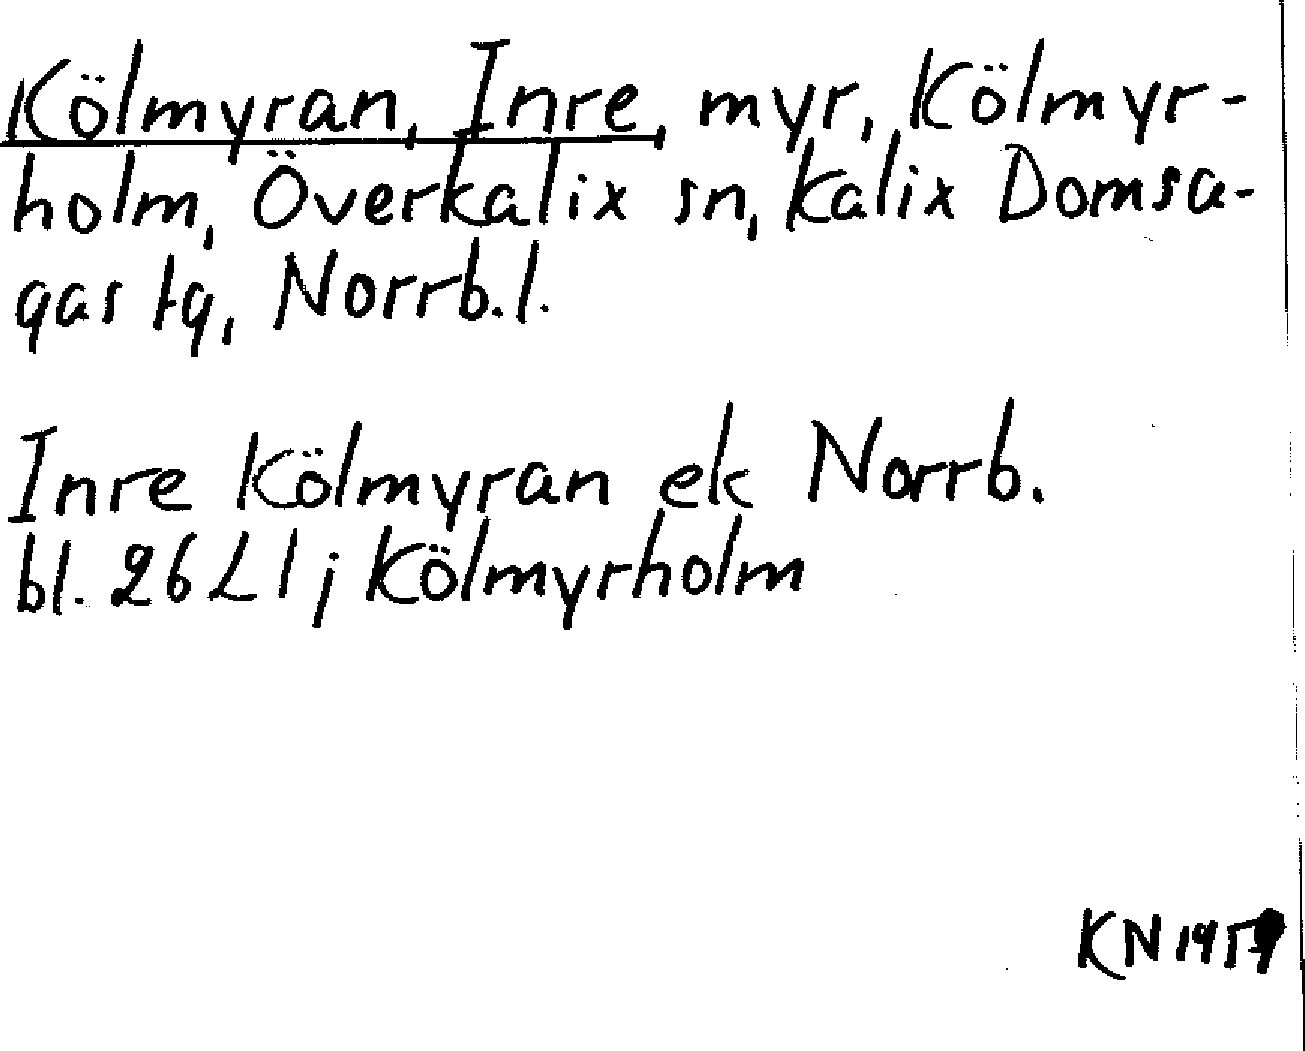 Kölmyran, Inre, myr, Kölmyr-
holm, Överkalix sn, Kalix Domsa-
gas tg, Norrb.l.
Inre Kölmyran ek Norrb.
bl. 26 L 1; Kölmyrholm
KN